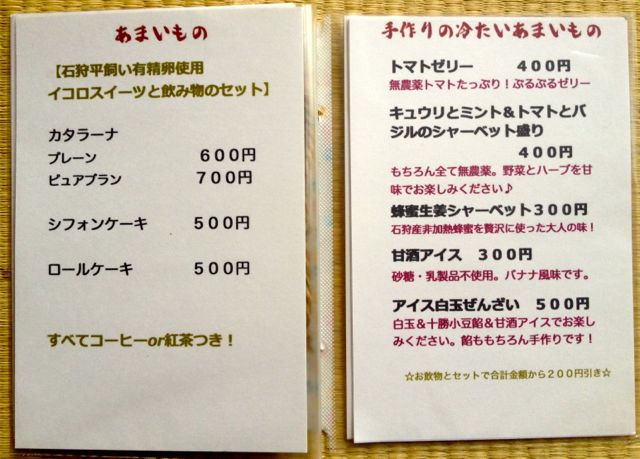 あまいもの
【石狩平飼い有精卵使用
イコロスイーツと飲み物のセット】
カタラーナ
プレーン ６００円
ピュアブラン ７００円
シフォンケーキ ５００円
ロールケーキ ５００円
すべてコーヒーor紅茶つき！
手作りの冷たいあまいもの
トマトゼリー ４００円
無農薬トマトたっぷり！ぷるぷるゼリー
キュウリとミント＆トマトとバ
ジルのシャーベット盛り
４００円
もちろん全て無農薬。野菜とハーブを甘
味でお楽しみください♪
蜂蜜生姜シャーベット３００円
石狩産非加熱蜂蜜を贅沢に使った大人の味！
甘酒アイス ３００円
砂糖・乳製品不使用。バナナ風味です。
アイス白玉ぜんざい ５００円
白玉＆十勝小豆餡＆甘酒アイスでお楽し
みください。餡ももちろん手作りです！
☆お飲物とセットで合計金額から２００円引き☆